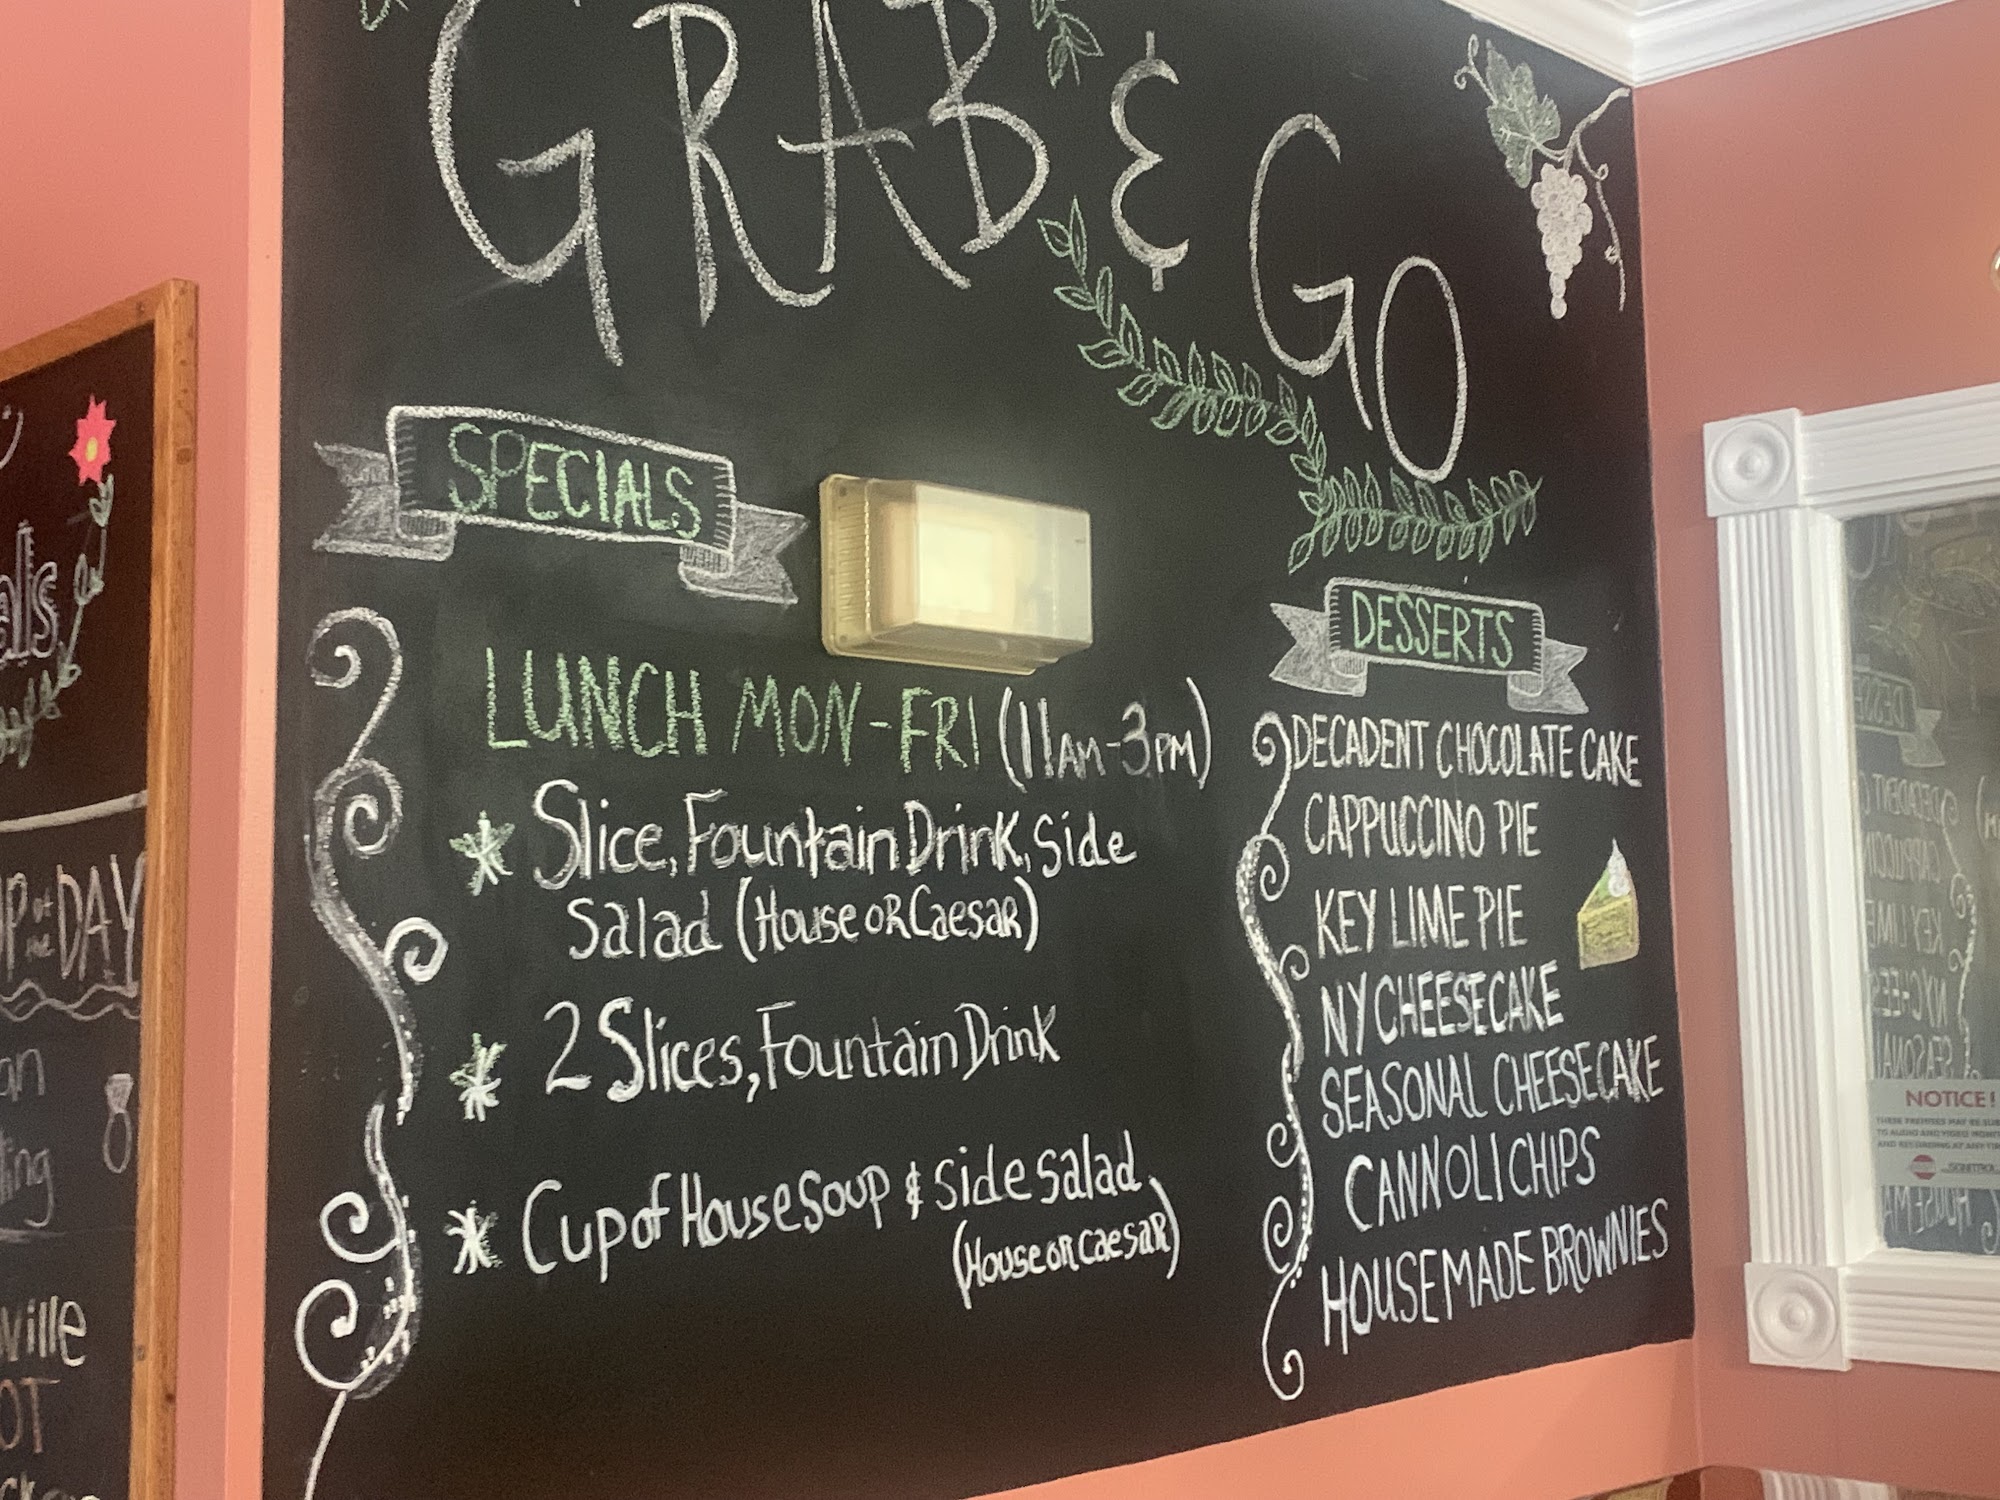 GRAB & GO
SPECIALS
LUNCH MON-FRI (11AM-3PM)
Slice, Fountain Drink, Side
Salad (House OR Caesar)
2 Slices, Fountain Drink
Cup of House Soup & Side Salad
(House or Caesar)
DESSERTS
DECADENT CHOCOLATE CAKE
CAPPUCCINO PIE
KEY LIME PIE
NY CHEESECAKE
SEASONAL CHEESECAKE
CANNOLI CHIPS
HOUSEMADE BROWNIES
of the DAY
ville
NOTICE!
THESE PREMISES MAY BE
TO AUDIO AND VIDEO
AND RECORDING AT ANY